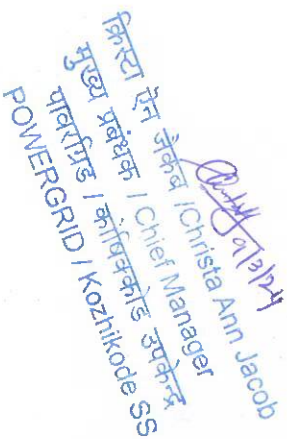 क्रिस्टा ऐन जैकब /Christa Ann Jacob
मुख्य प्रबंधक / Chief Manager
पावरग्रिड / कोषिक्कोड उपकेन्द्र
POWERGRID / Kozhikode SS